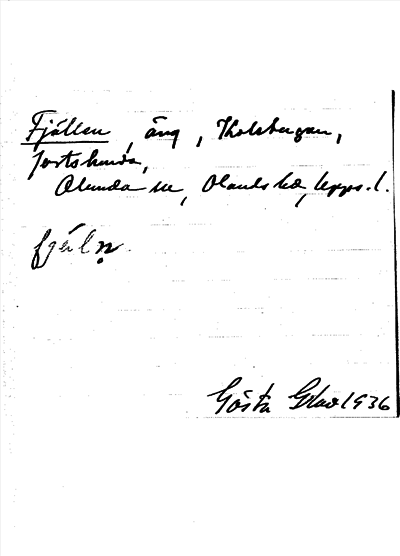 Fjällen, äng, Kolsbergan,
Fortskunda,
Alunda sn, Olands hd, Upps. l.
fjäl ṇ.
Gösta 1936